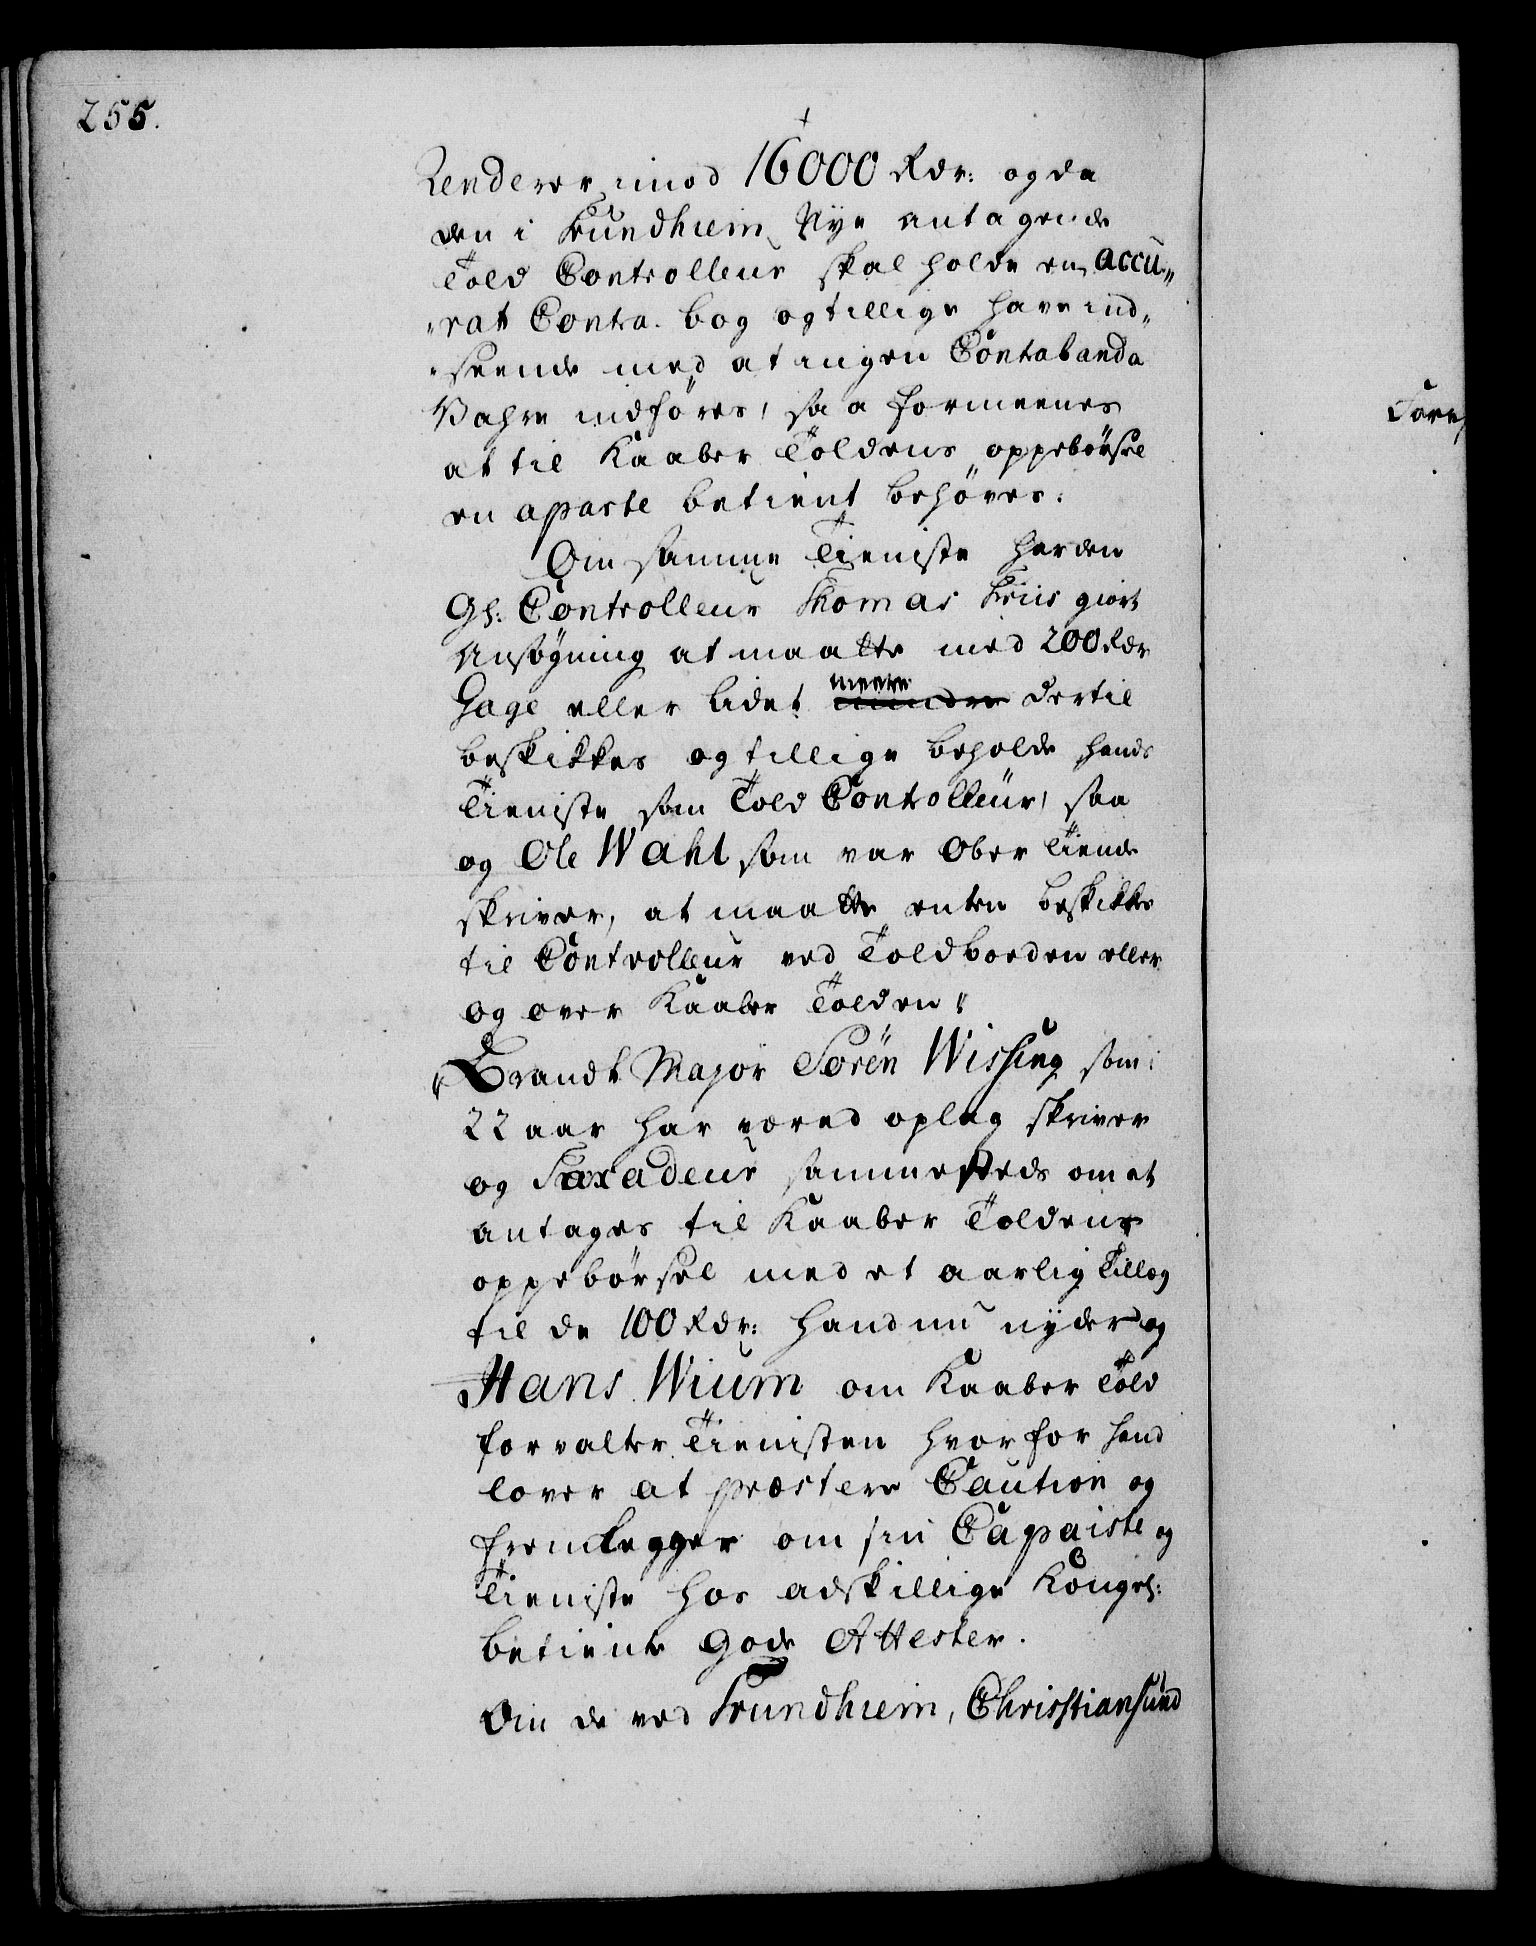 255.
Renderer imod 16000 Rdr: og da
den i Trundhiem Nye antagende
Told Controlleur skal holde en accu„
„rat Contra bog og tillige have ind„
„seende med at ingen Contabanda
Vahre indføres, saa formeenes
at til Kaaber Toldens oppebørsel
en aparte betient behøves:
Om samme Tieniste har den
Gl: Controlleur Thomas Friis giort
Ansøgning at maatte med 200 Rdr
Gage eller lidet meere mindre dertil
beskikkes og tillige beholde hands
Tieniste som Told Controlleur, saa
og Ole Wahl som var Ober Tiende
skriver, at maatte enten beskikkes
til Controlleur ved Toldboeden eller
og over Kaaber Tolden„
„Brandt Major Sørén Wissing som i
22 aar har væred oplag skriver
og Taxadeur sammesteds om at
antages til Kaaber Toldens
oppebørsel med et aarlig Tillæg
til de 100 Rdr: hand nu nyder og
Hans Wium om Kaaber Told
forvalter Tienisten hvorfor hand
lover at præstere Caution og
fremlegger om sin Capaiste og
Tieniste hos adskillige Kongel:
betiente gode Attester.
Om de ved Trundhiem, Christiansund
Fore